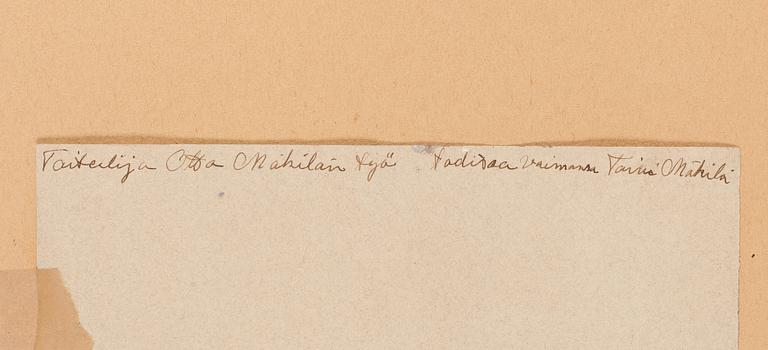 Taiteilija Otto Mäkilän työ todistaa vaimonsa Taini Mäkilä